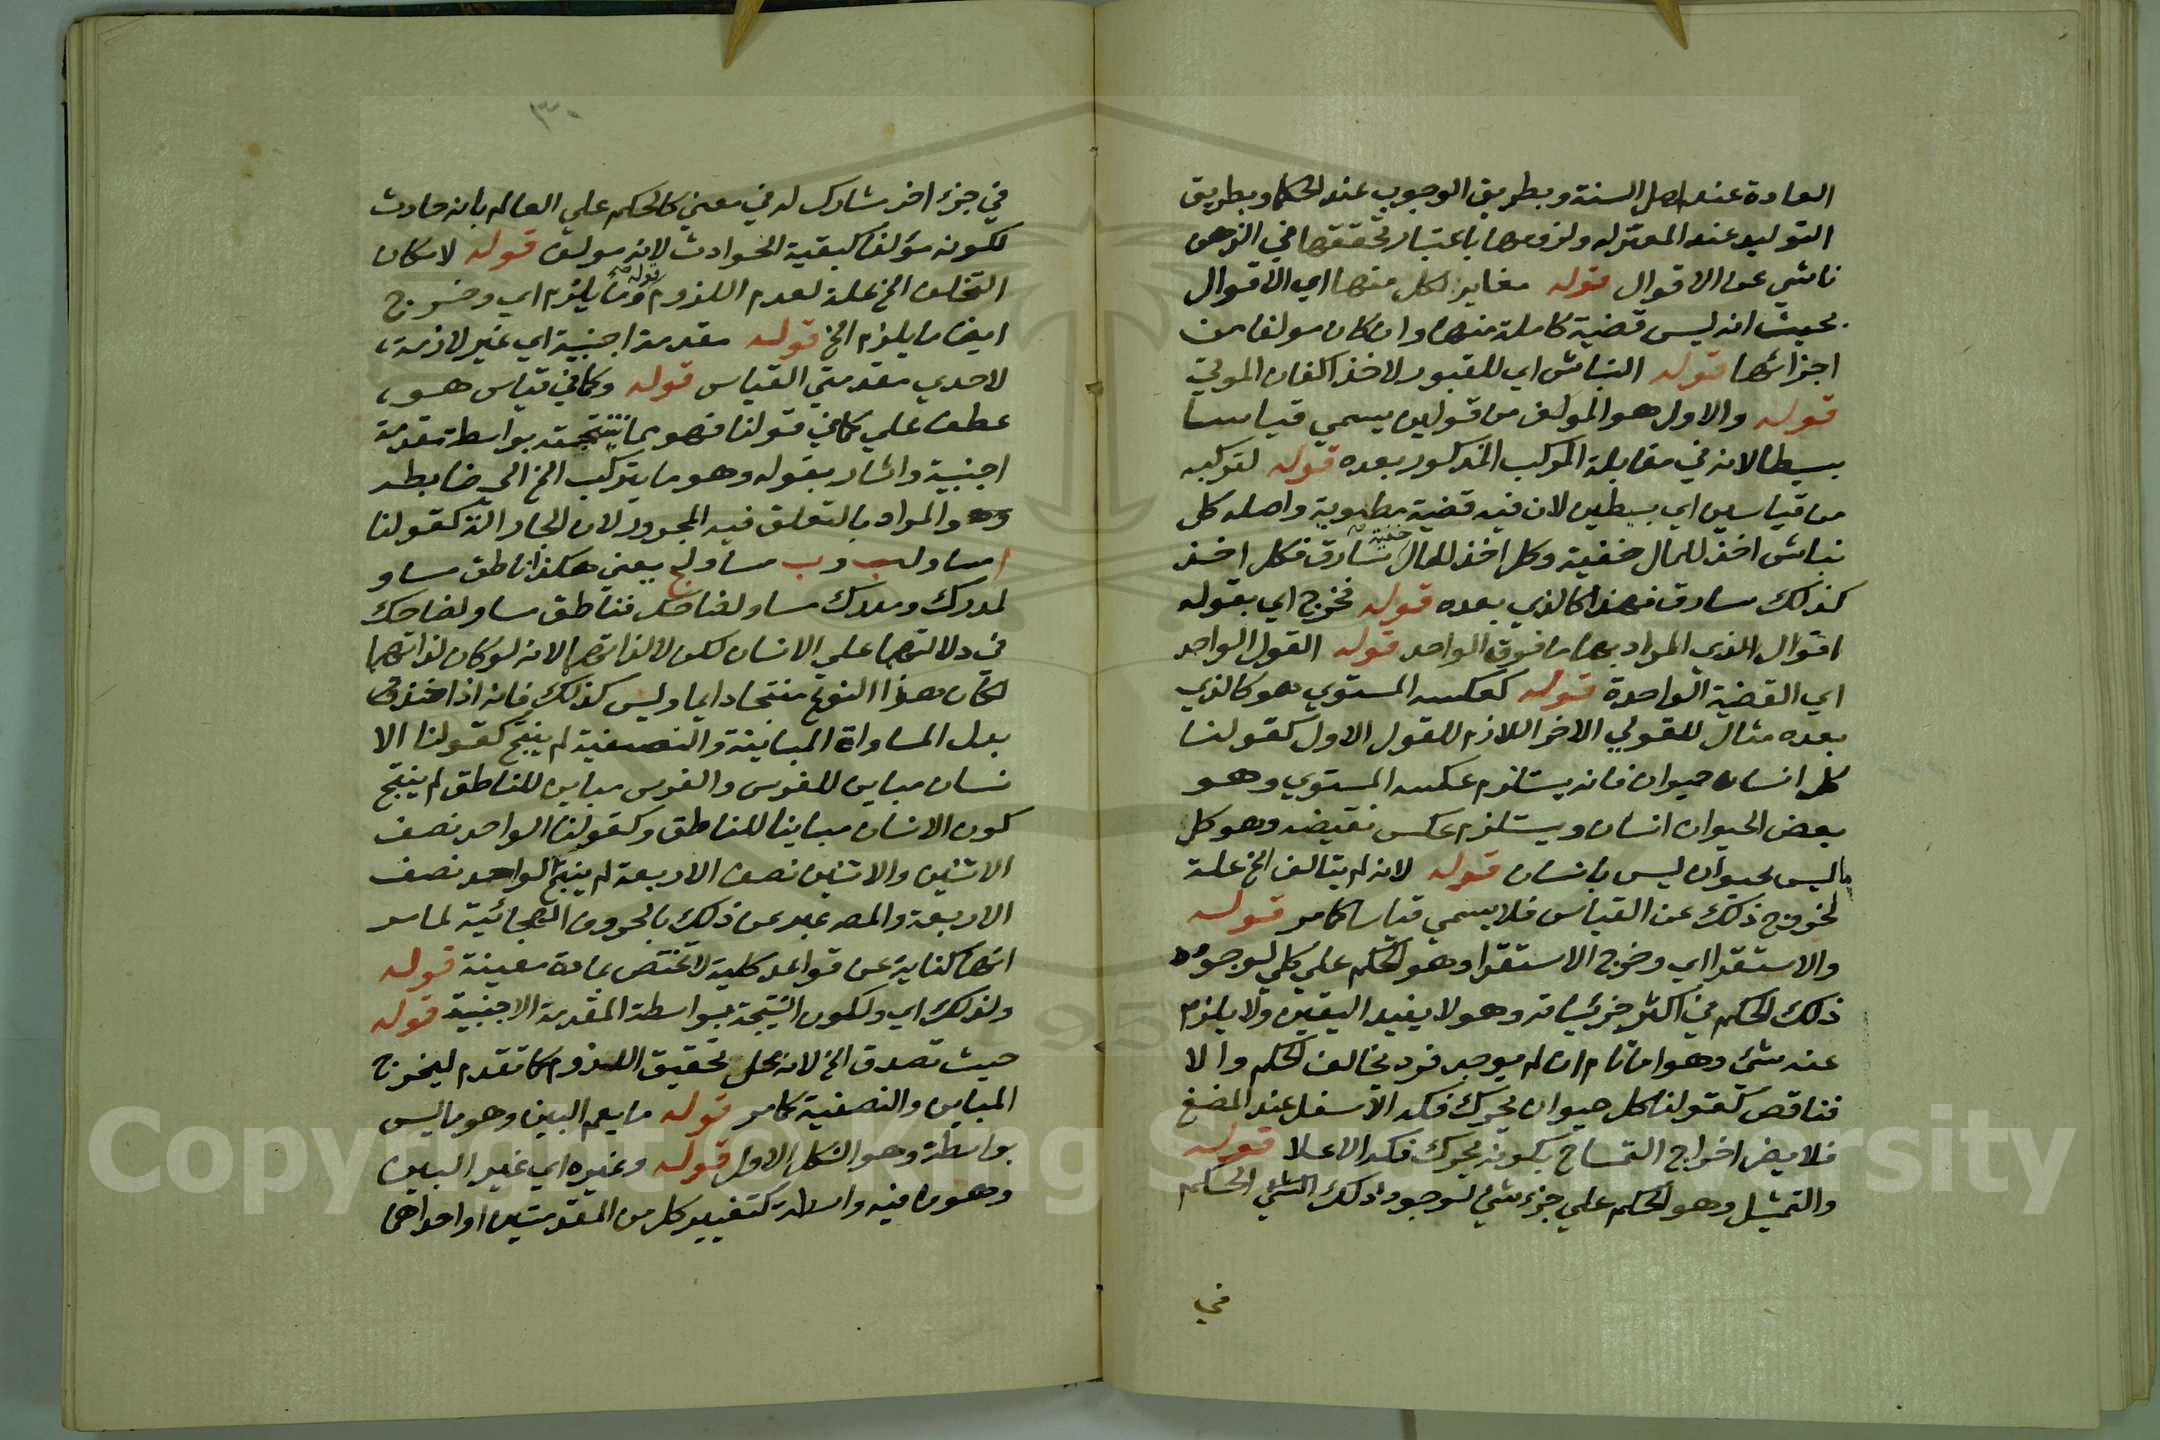 العادة عند اهل السنة وبطريق الوجوب عند الحكما وبطريق
التوليد عند المعتزله ولزومها باعتبار تحققها في الذهن
ناشي عن الاقوال قوله مغاير لكل منها اي الاقوال
بحيث انه ليس قضية كاملة منها وان كان مولفا من
اجزائها قوله النباش اي للقبور لاخذ اكفان الموتي
قوله والاول هو المولف من قولين يسمي قياسا
بسيطا لانه في مقابلة المركب المذكور بعده قوله لتركبه
من قياسين اي بسيطين لان فيه قضية مطوية واصله كل
نباش اخذ للمال خفية وكل اخذ للمال خفية سارق فكل اخذ
كذلك سارق فهذا كالذي بعده قوله فخرج اي بقوله
اقوال الذي المراد بها ما فوق الواحد قوله القول الواحد
اي القضية الواحدة قوله كعكسه المستوي هو كالذي
بعده مثال للقول الاخر اللازم للقول الاول كقولنا
كل انسان حيوان فانه يستلزم عكسه المستوي وهو
بعض الحيوان انسان ويستلزم عكس نقيضه وهو كل
ما ليس بحيوان ليس بانسان قوله لانه لم يتالف الخ علة
لخروج ذلك عن القياس فلا يسمي قياسا كما مر قوله
والاستقرا اي وخرج الاستقرا وهو الحكم علي كلي لوجود
ذلك الحكم في اكثر جزئياته وهو لا يفيد اليقين ولا يلزم
عنه شئ وهو اما تام ان لم يوجد فرد يخالف الحكم والا
فناقص كقولنا كل حيوان يحرك فكه الاسفل عند المضغ
فلا يضر اخراج التمساح بكونه يحرك فكه الاعلا قوله
والتمثيل وهو الحكم علي جزء شئ لوجود ذلك الشئ الحكم
في
٣٠
في جزء اخر مشارك له في معني كالحكم علي العالم بانه حادث
لكونه مؤلفا كبقية الحوادث لانه مولف قوله لامكان
التخلف الخ علة لعدم اللزوم قوله وما يلزم اي وخرج
ايضا ما يلزم الخ قوله مقدمة اجنبية اي غير لازمة
لاحدي مقدمتي القياس قوله وكما في قياس هو
عطف علي كما في قولنا فهو مما نتيجته بواسطة مقدمة
اجنبية واشار بقوله وهو ما يتركب الخ الي ضابطه
والمراد بالتعلق فيه المجرور لان الجار الة كقولنا
ا مساو لب وب مساو لج يعني هكذا ناطق مساو
لمدرك ومدرك مساو لضاحك فناطق مساو لضاحك
في دلالتهما علي الانسان لكن لا لذاتهما لانه لو كان لذاتهما
لكان هذا النوع منتجا دايما وليس كذلك فانه اذا اخذت
بدل المساواة المباينة والنصفية لم ينتج كقولنا الا
نسان مباين للفرس والفرس مباين للناطق لم ينتج
كون الانسان مباينا للناطق وكقولنا الواحد نصف
الاثنين والاثنين نصف الاربعة لم ينتج الواحد نصف
الاربعة والمص عبر عن ذلك بالحروف الهجائية لما مر
انها كناية عن قواعد كلية لا تختص بمادة معينة قوله
ولذلك اي ولكون النتيجة بواسطة المقدمة الاجنبية قوله
حيث تصدق الخ لانه محل تحقيق اللزوم كما تقدم ليخرج
المباين والنصفية كما مر قوله ما يعم البين وهو ما ليس
بواسطة وهو الشكل الاول قوله وغيره اي غير البين
وهو ما فيه واسطة كتغيير كل من المقدمتين او احداهما